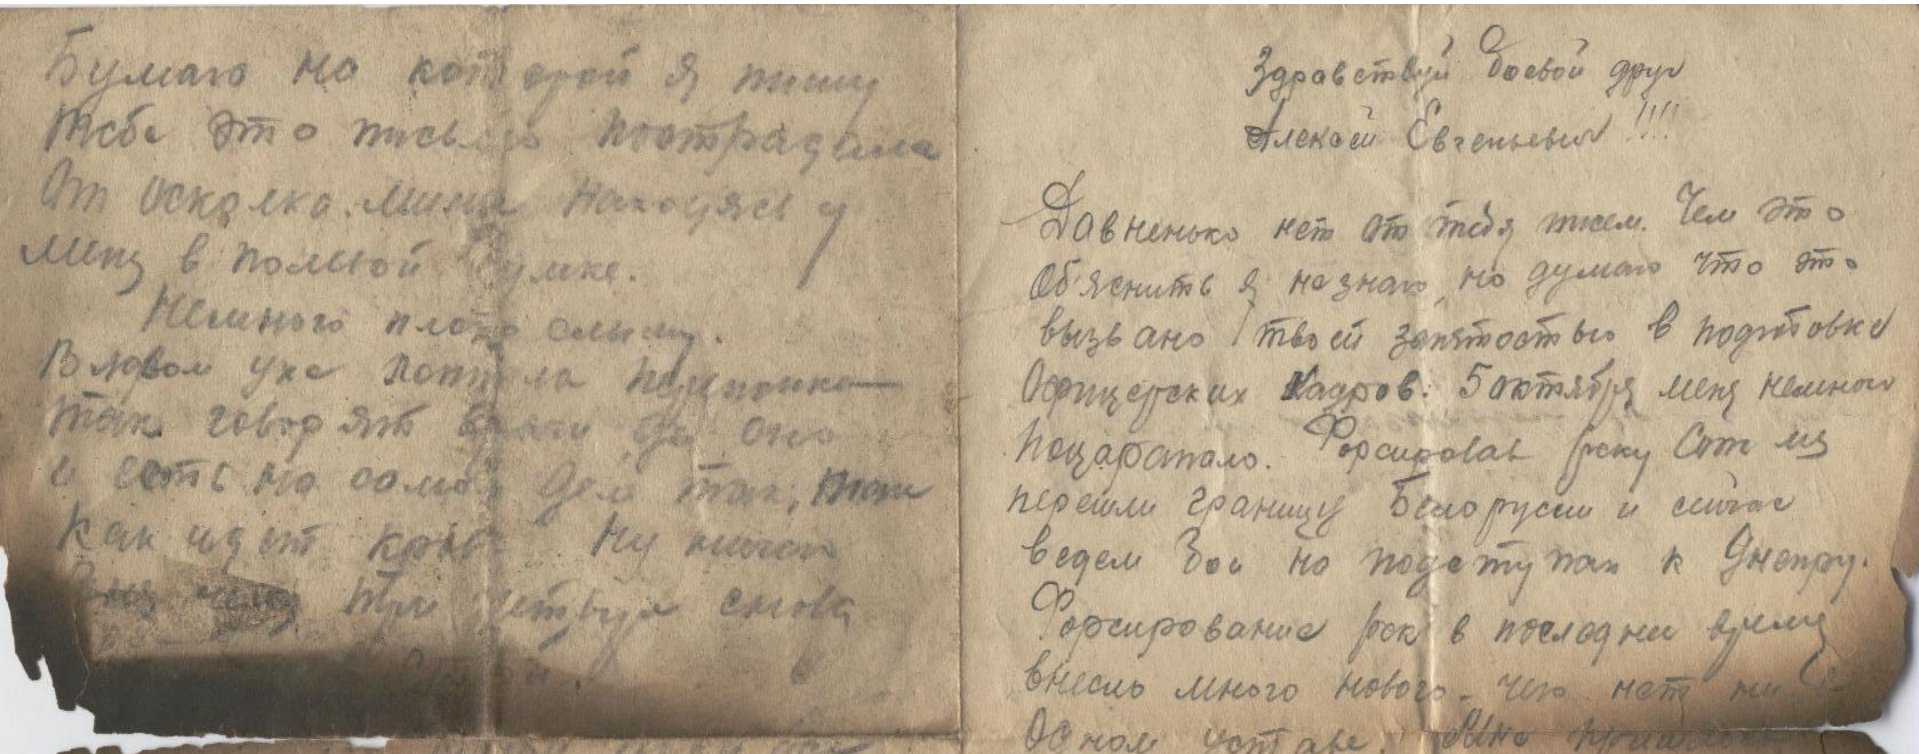 Бумага на которой я пишу
тебе это письмо пострадала
От осколка мины находясь у
меня в полевой сумке.
Немного плохо слышу.
В левом ухе лопнула перепонка
так говорят врачи да оно
и есть на самом деле так, так
как идет кровь Ну ничего
Дня через три четыре снова
Здравствуй боевой друг
Алексей Евгеньевич!!!!
Давненько нет от тебя писем. Чем это
Об'яснить я незнаю, но думаю что это
вызвано твоей занятостью в подготовке
Офицерских Кадров. 5 октября меня немного
поцарапало. Форсировав реку Сож мы
перешли границу Белорусии и сейчас
ведем бои на подступах к Днепру.
Форсирование рек в последнее время
внесло много нового. чего нет ни в
Одном уставе. Мне